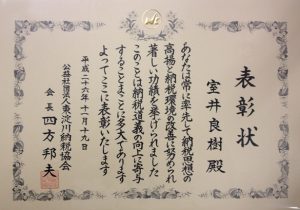 表彰状
室井良樹殿
あなたは常に率先して納税思想の
高揚と納税環境の改善に努められ
著しい功績を挙げられました
このことは納税道義の向上に寄与
することまことに多大であります
よってここに表彰いたします
平成二十六年十一月十九日
公益社団法人東淀川納税協会
会長 四方邦夫